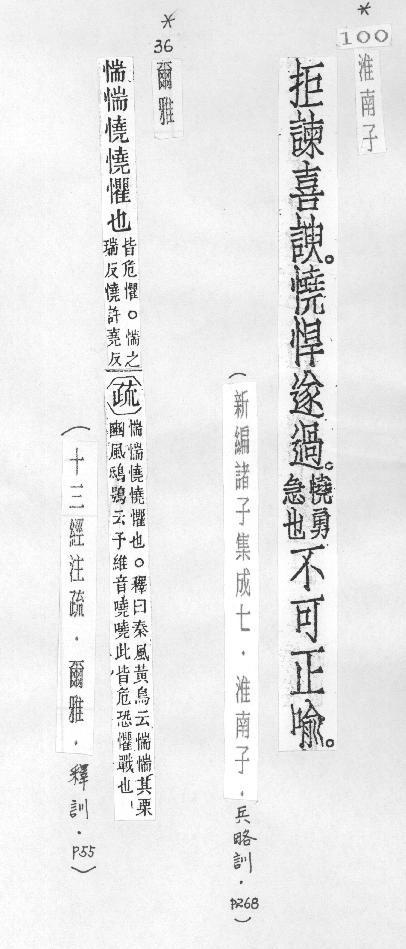 *
100
淮南子
拒諫喜諛。憢悍遂過。憢勇急也不可正喻。
(新編諸子集成七．淮南子．兵略訓．P268)
*
36
爾雅
惴惴憢憢懼也皆危懼。惴之瑞反憢許堯反(疏)惴惴憢憢懼也。釋曰秦風黃鳥云惴惴其栗豳風鴟鴞云予維音嘵嘵此皆危恐懼戰也
(十三經注疏．爾雅．釋訓．P55)